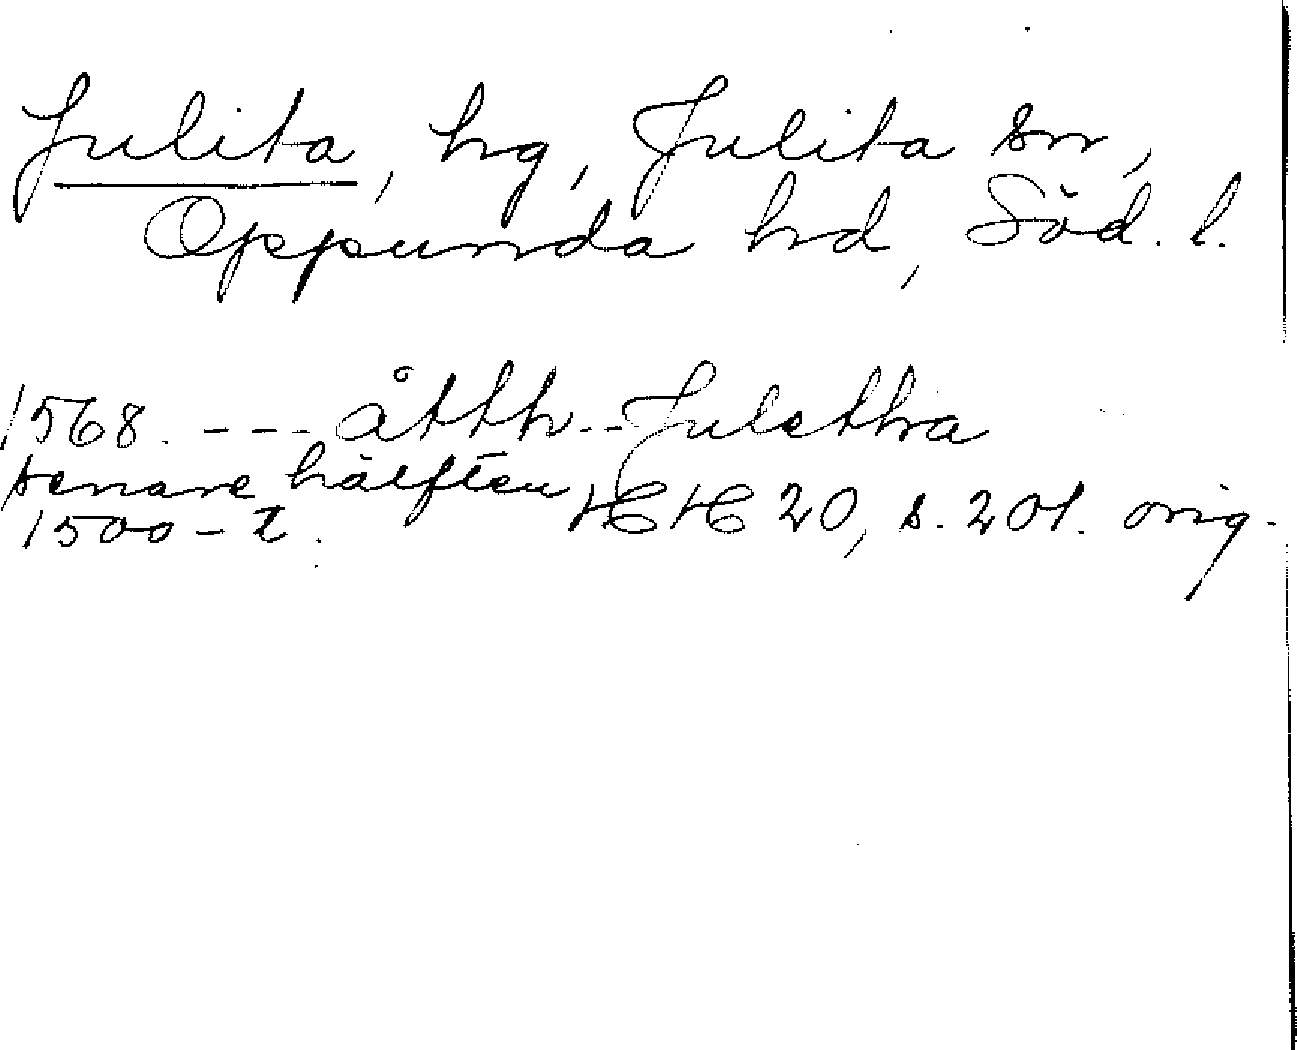 Julita, hg, Julita sn,
Oppunda hd, Söd. l.
1568. --- åtth -- Juletha
senare hälften HH 20, s. 201. orig.
1500-t.